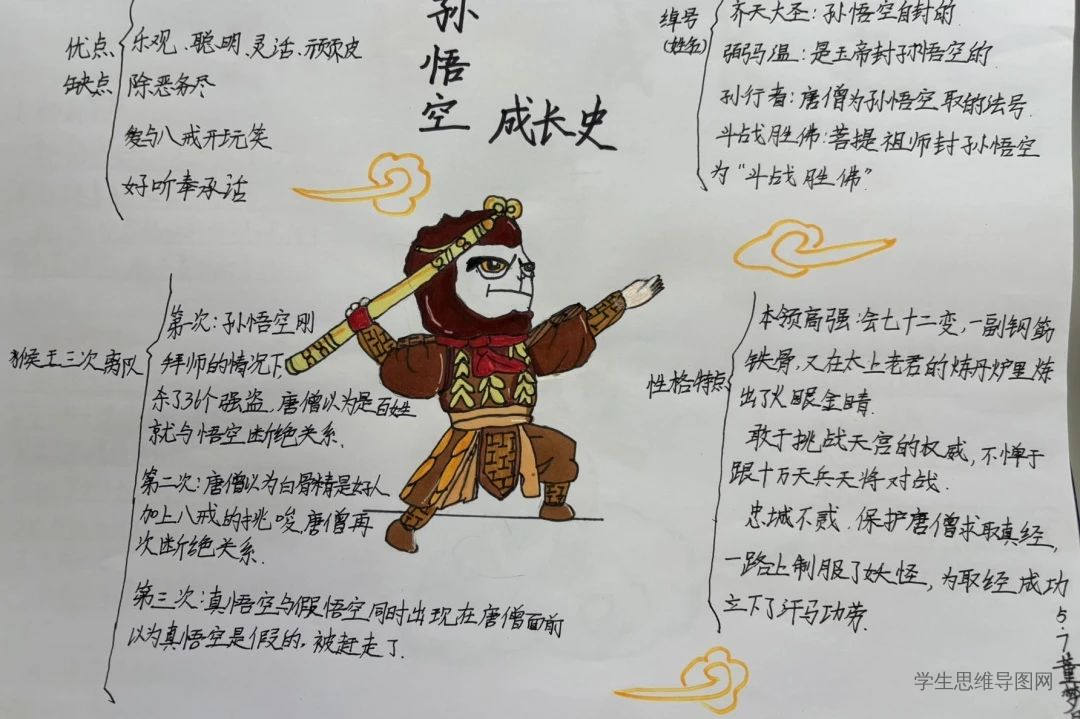 孙悟空
成长史
优点
缺点
乐观、聪明、灵活、顽皮
除恶务尽
爱与八戒开玩笑
好听奉承话
绰号
(姓名)
齐天大圣：孙悟空自封的
弼马温：是玉帝封孙悟空的
孙行者：唐僧为孙悟空取的法号.
斗战胜佛：菩提祖师封孙悟空
为“斗战胜佛”
猴王三次离队
第一次：孙悟空刚
拜师的情况下,
杀了36个强盗，唐僧以为是百姓
就与悟空断绝关系.
第二次：唐僧以为白骨精是好人
加上八戒的挑唆，唐僧再
次断绝关系.
第三次：真悟空与假悟空同时出现在唐僧面前
以为真悟空是假的，被赶走了.
性格特点
本领高强：会七十二变，一副钢筋
铁骨，又在太上老君的炼丹炉里炼
出了火眼金睛.
敢于挑战天宫的权威，不惮于
跟十万天兵天将对战.
忠城不贰．保护唐僧求取真经,
一路上制服了妖怪，为取经成功
立下了汗马功劳.
5.7董梦
学生思维导图网